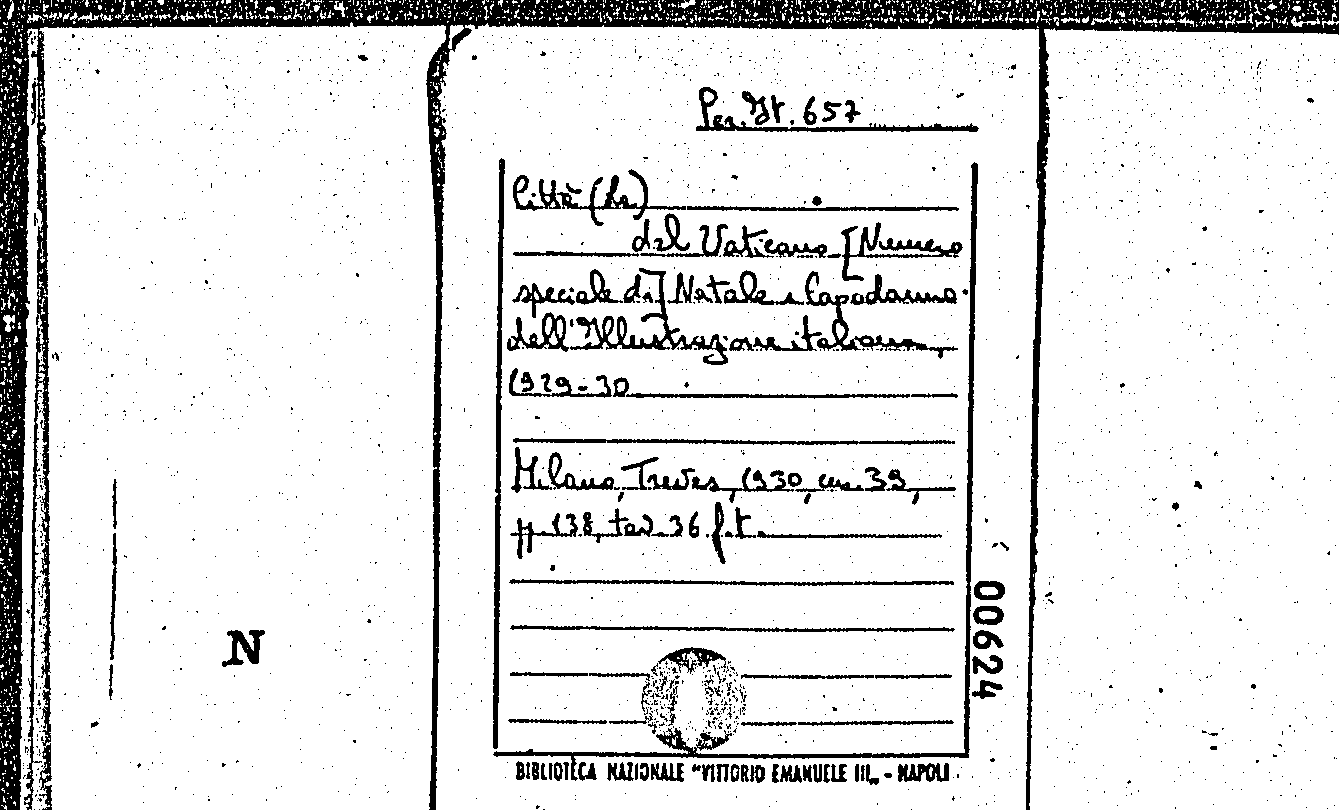 Per. It. 657
Città (La)
del Vaticano [Numero
speciale di] Natale e Capodanno
dell'Illustrazione italiana,
1929-30
Milano, Treves, 1930, cm. 39,
pp. 138, tav. 36 f.t.
00624
N
BIBLIOTECA NAZIONALE "VITTORIO EMANUELE III„ - NAPOLI